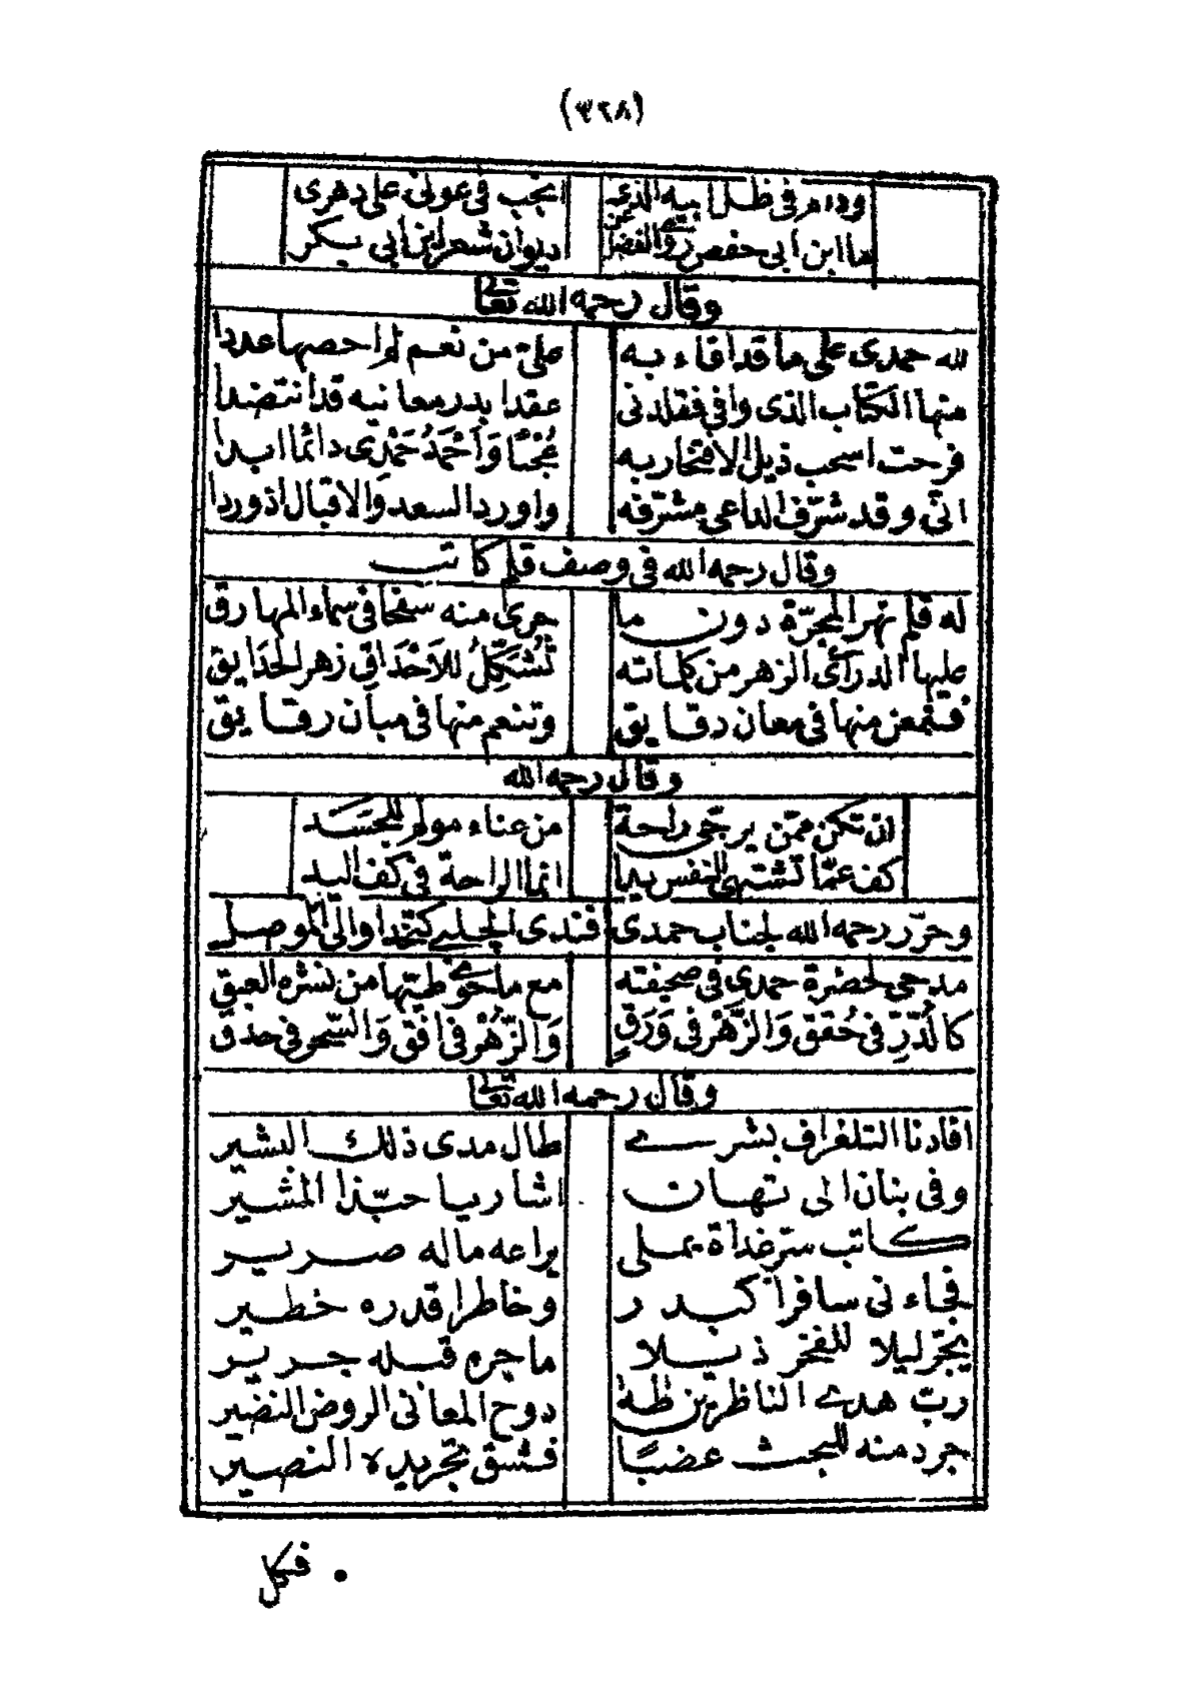 (٣٢٨)
ودام في ظل ابيه الذي انجب في عولي على دهري
ما ابن ابي حفص روى الفضل عن ديوان شعر ابن ابي بكر
وقال رحمه الله تعالى
لله حمدي على ما قد افاء به علي من نعم لم احصها عددا
منها الكتاب الذي وافى فقلدني عقدا بدر معانيه قد انتضدا
فرحت اسحب ذيل الافتخار به عُجْبًا وَاَحْمَدُ حَمْدِي دائما ابدا
انّي وقد شرّف الداعي مشرّفه واورد السعد والاقبال اذ وردا
وقال رحمه الله في وصف قلم كاتب
له قلم نهر المجرّة دون ما جرى منه سفحا في سماء المهارق
عليها الدراي الزهر من كلماته تُشَكِّلُ للاَحْدَاقِ زهر الحَدَايق
فتمعن منها في معان دقايق وتنعم منها في مبان رقايق
وقال رحمه الله
لا تكن ممّن يرجّي راحة من عناء مولم للجسد
كف عمّا تشتهي النفس يدا انما الراحة في كف اليد
وحرّر رحمه الله لجناب حمدي افندي الجلبي كتخدا والي الموصل
مدحي لحضرة حمدي في صحيفته مع ما حوى طيّها من نشره العبق
كالُدّرِّ في حُقَقٍ وَالزَّهْرِ في وَرَقٍ وَالزُّهْرِ في افق وَالسّحر في حدق
وقال رحمه الله تعالى
افادنا التلغراف بشرى طال مدى ذلك البشير
وفي بنان الى تهان اشار يا حبّذا المشير
كاتب سرّ غداة يملي يراعه ماله صرير
فجاءني سافرا كبدر وخاطرا قدره خطير
يجرّ ليلا للفخر ذيلا ما جره قبله جرير
ربّ هدى الناظرين ظله دوح المعاني الروض النضير
جرد منه للبحث عضبًا فشق تجريده النصير
فكل